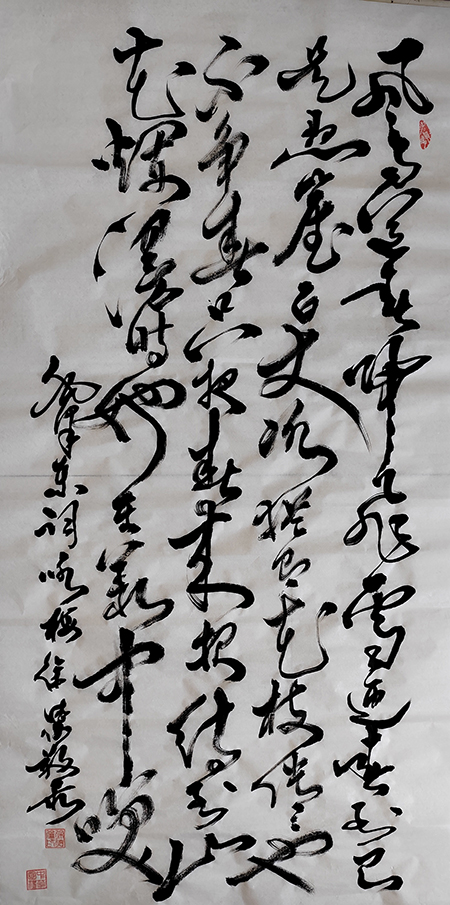 风雨送春归飞雪迎春到已
是悬崖百丈冰犹有花枝俏々也
不争春只把春来报待到山
花烂漫时她在丛中笑
泽东词咏梅徐